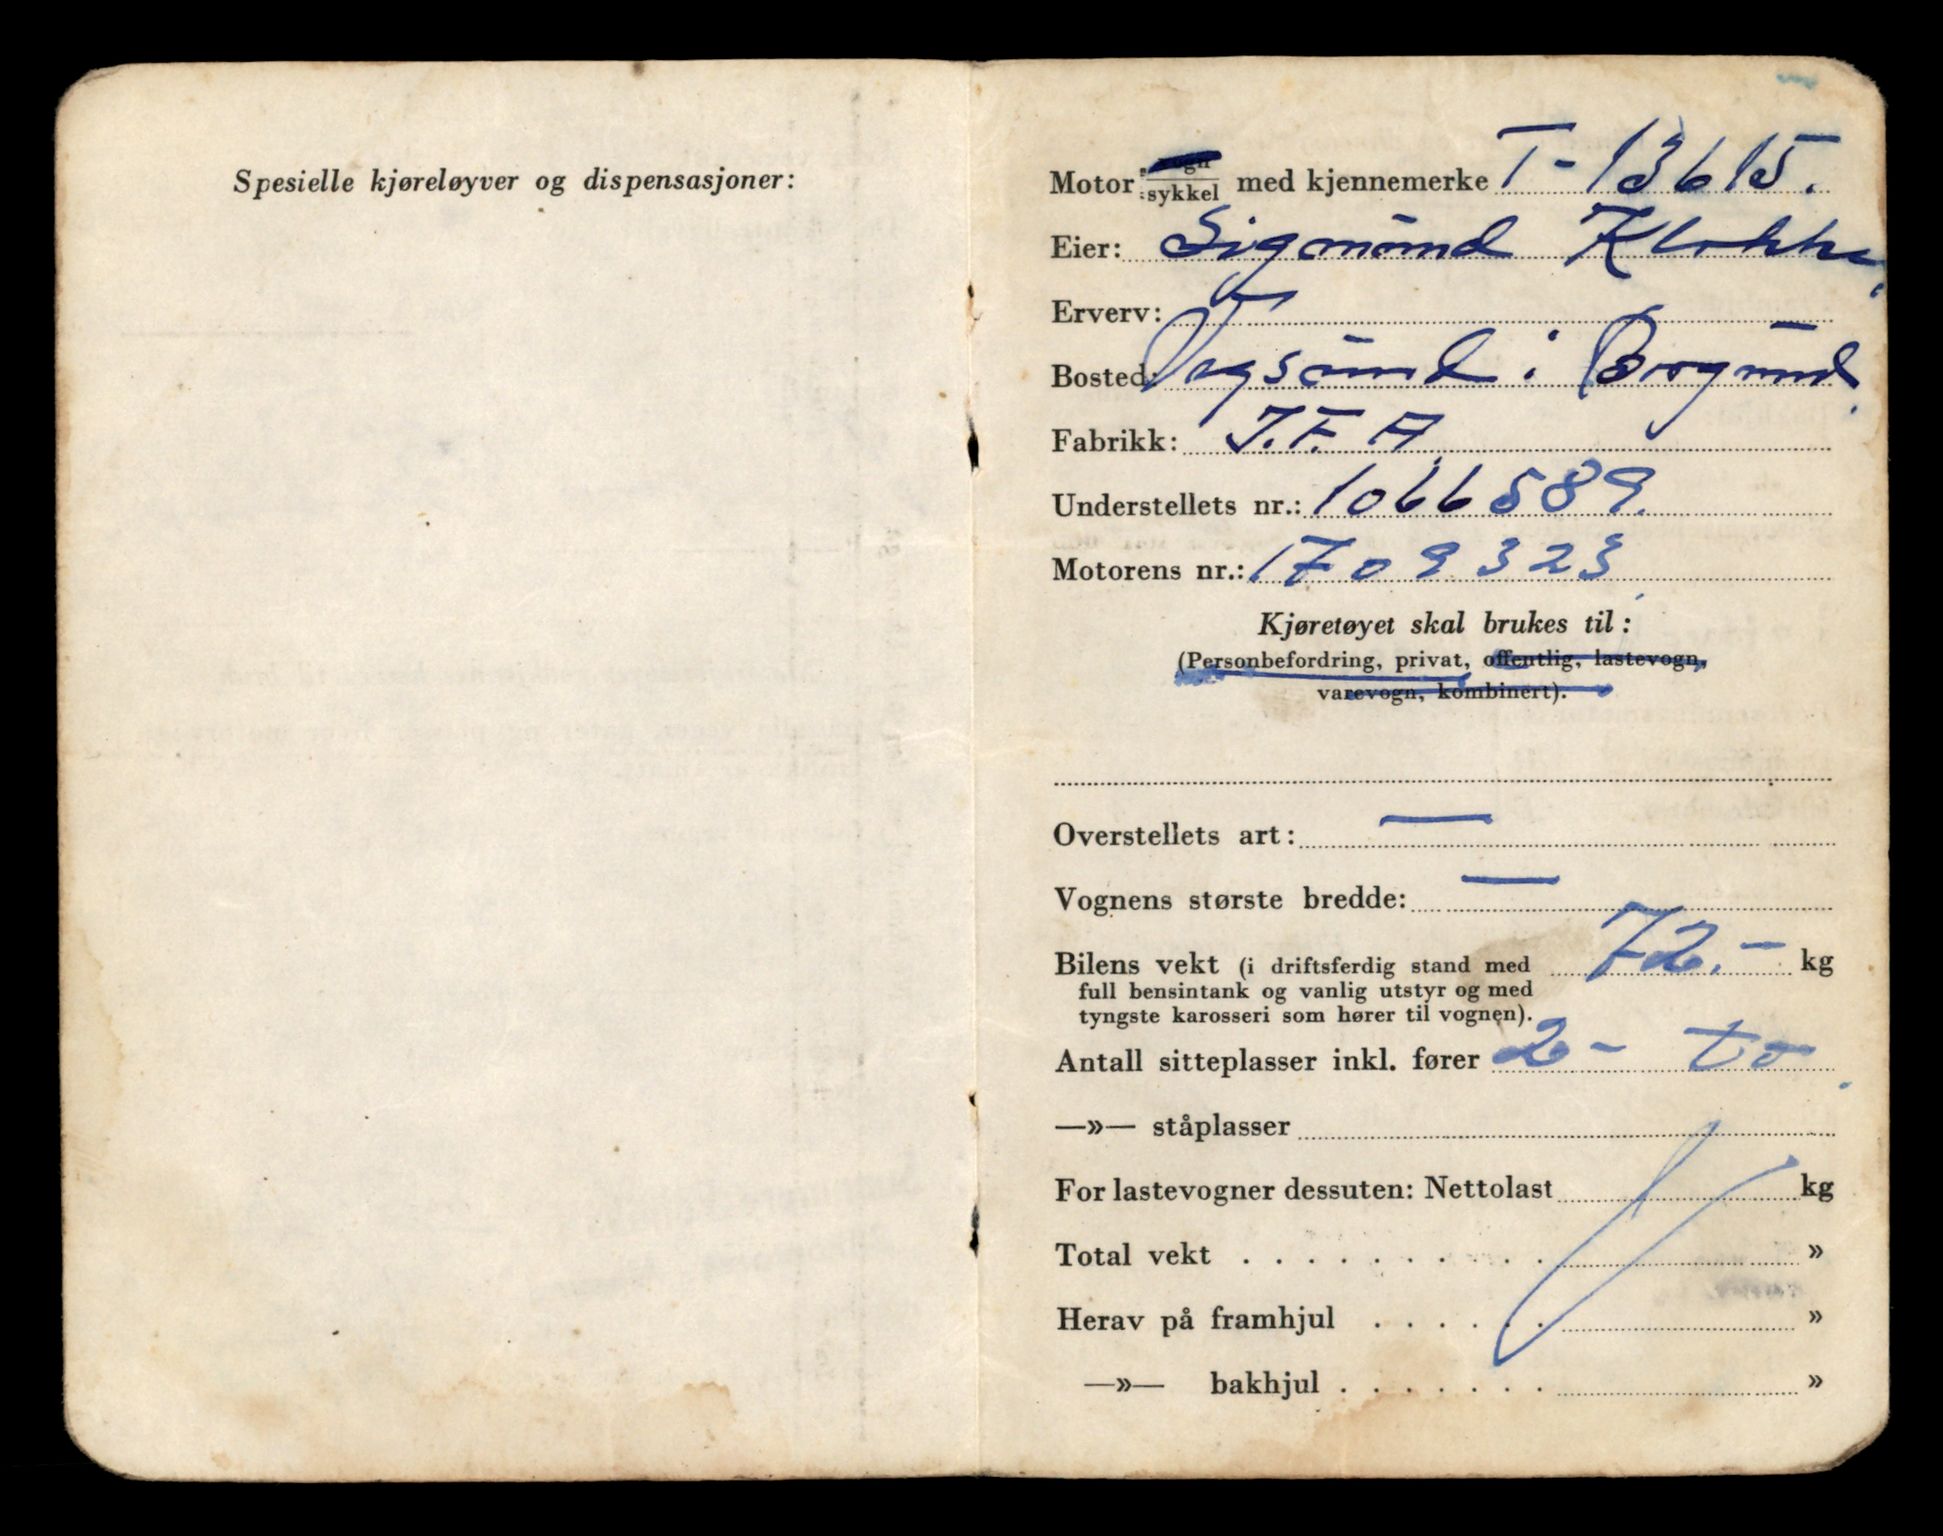 Spesielle kjøreløyver og dispensasjoner:
Motor vogn
sykkel med kjennemerke T-13615.
Eier: Sigmund Klokke
Erverv:
Bosted: Vegsund i Borgund.
Fabrikk: J.F.A.
Understellets nr.: 1066589.
Motorens nr.: 1709323
Kjøretøyet skal brukes til:
(Personbefordring, privat, offentlig, lastevogn,
varevogn, kombinert).
Overstellets art: —
Vognens største bredde: —
Bilens vekt (i driftsferdig stand med 72.- kg
full bensintank og vanlig utstyr og med
tyngste karosseri som hører til vognen).
Antall sitteplasser inkl. fører 2 - to.
—»— ståplasser
For lastevogner dessuten: Nettolast kg
Total vekt . . . . . . . . . . »
Herav på framhjul . . . . . . »
—»— bakhjul . . . . . . . »